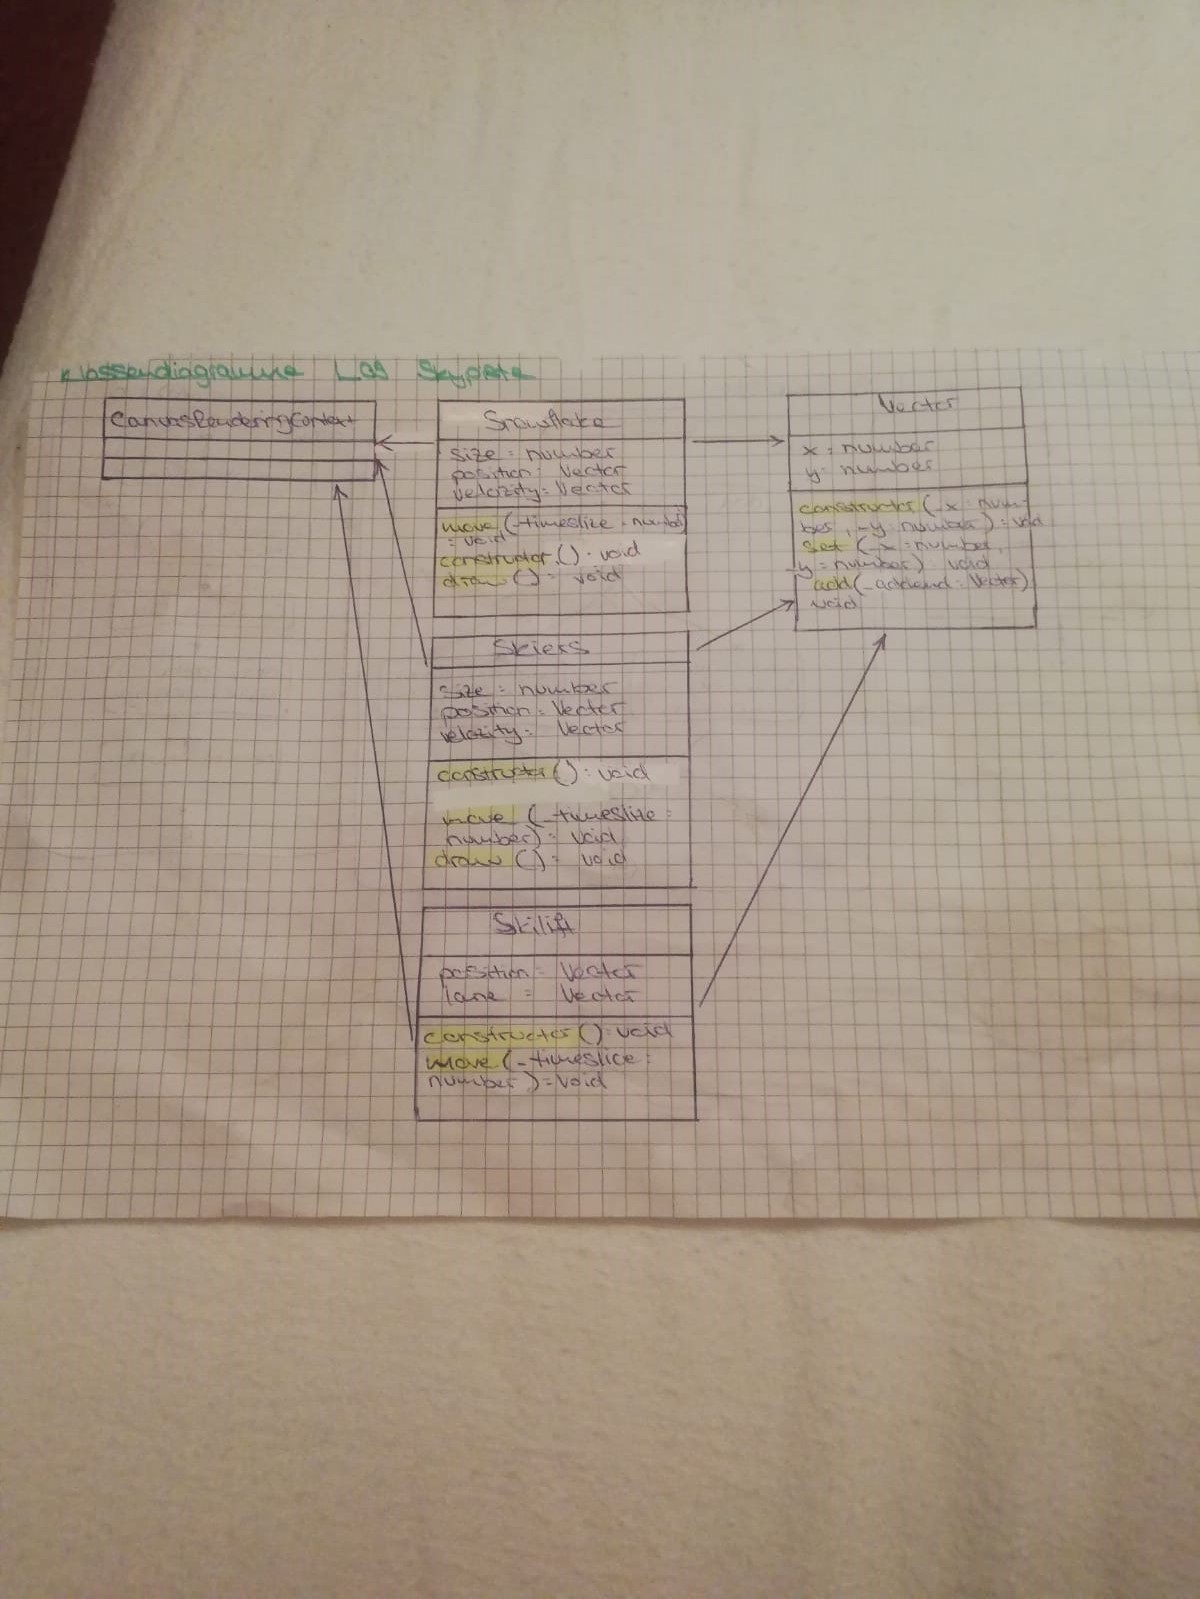 Klassendiagramme L09 Skypiste
CanvasRenderingContext
Snowflake
size : number
position : Vector
velozity : Vector
move (_timeslize : number)
: void
constructor () : void
draw () : void
Vector
x : number
y : number
constructor (_x : num-
ber, _y : number) : void
set (_x : number,
_y : number) void
add (_addend : Vector)
void
Skiers
size : number
position : Vector
velozity : Vector
constructor () : void
move (_timeslize :
number) : void
draw () : void
Skilift
position : Vector
lane : Vector
constructor () : void
move (_timeslice :
number) : void